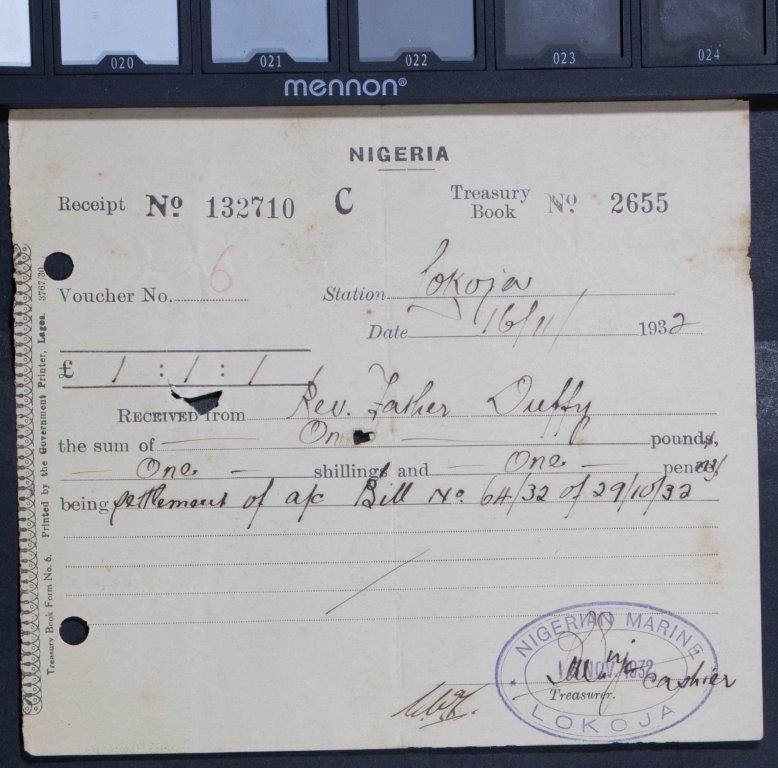 020 021 022 023 024
mennon®
NIGERIA
Receipt No 132710 C Treasury Book No 2655
Voucher No. 6 Station Lokoja
Date 16/11/ 1932
£ 1 : 1 : 1
RECEIVED from Rev. Father Duffy
the sum of One pounds,
One shillings and One penny
being settlement of a/c Bill No. 64/32 of 29/10/32
NIGERIAN MARINE
NOV 1932
cashier
Treasurer.
LOKOJA
Treasury Book Form No. 6. Printed by the Government Printer, Lagos. 3767/30